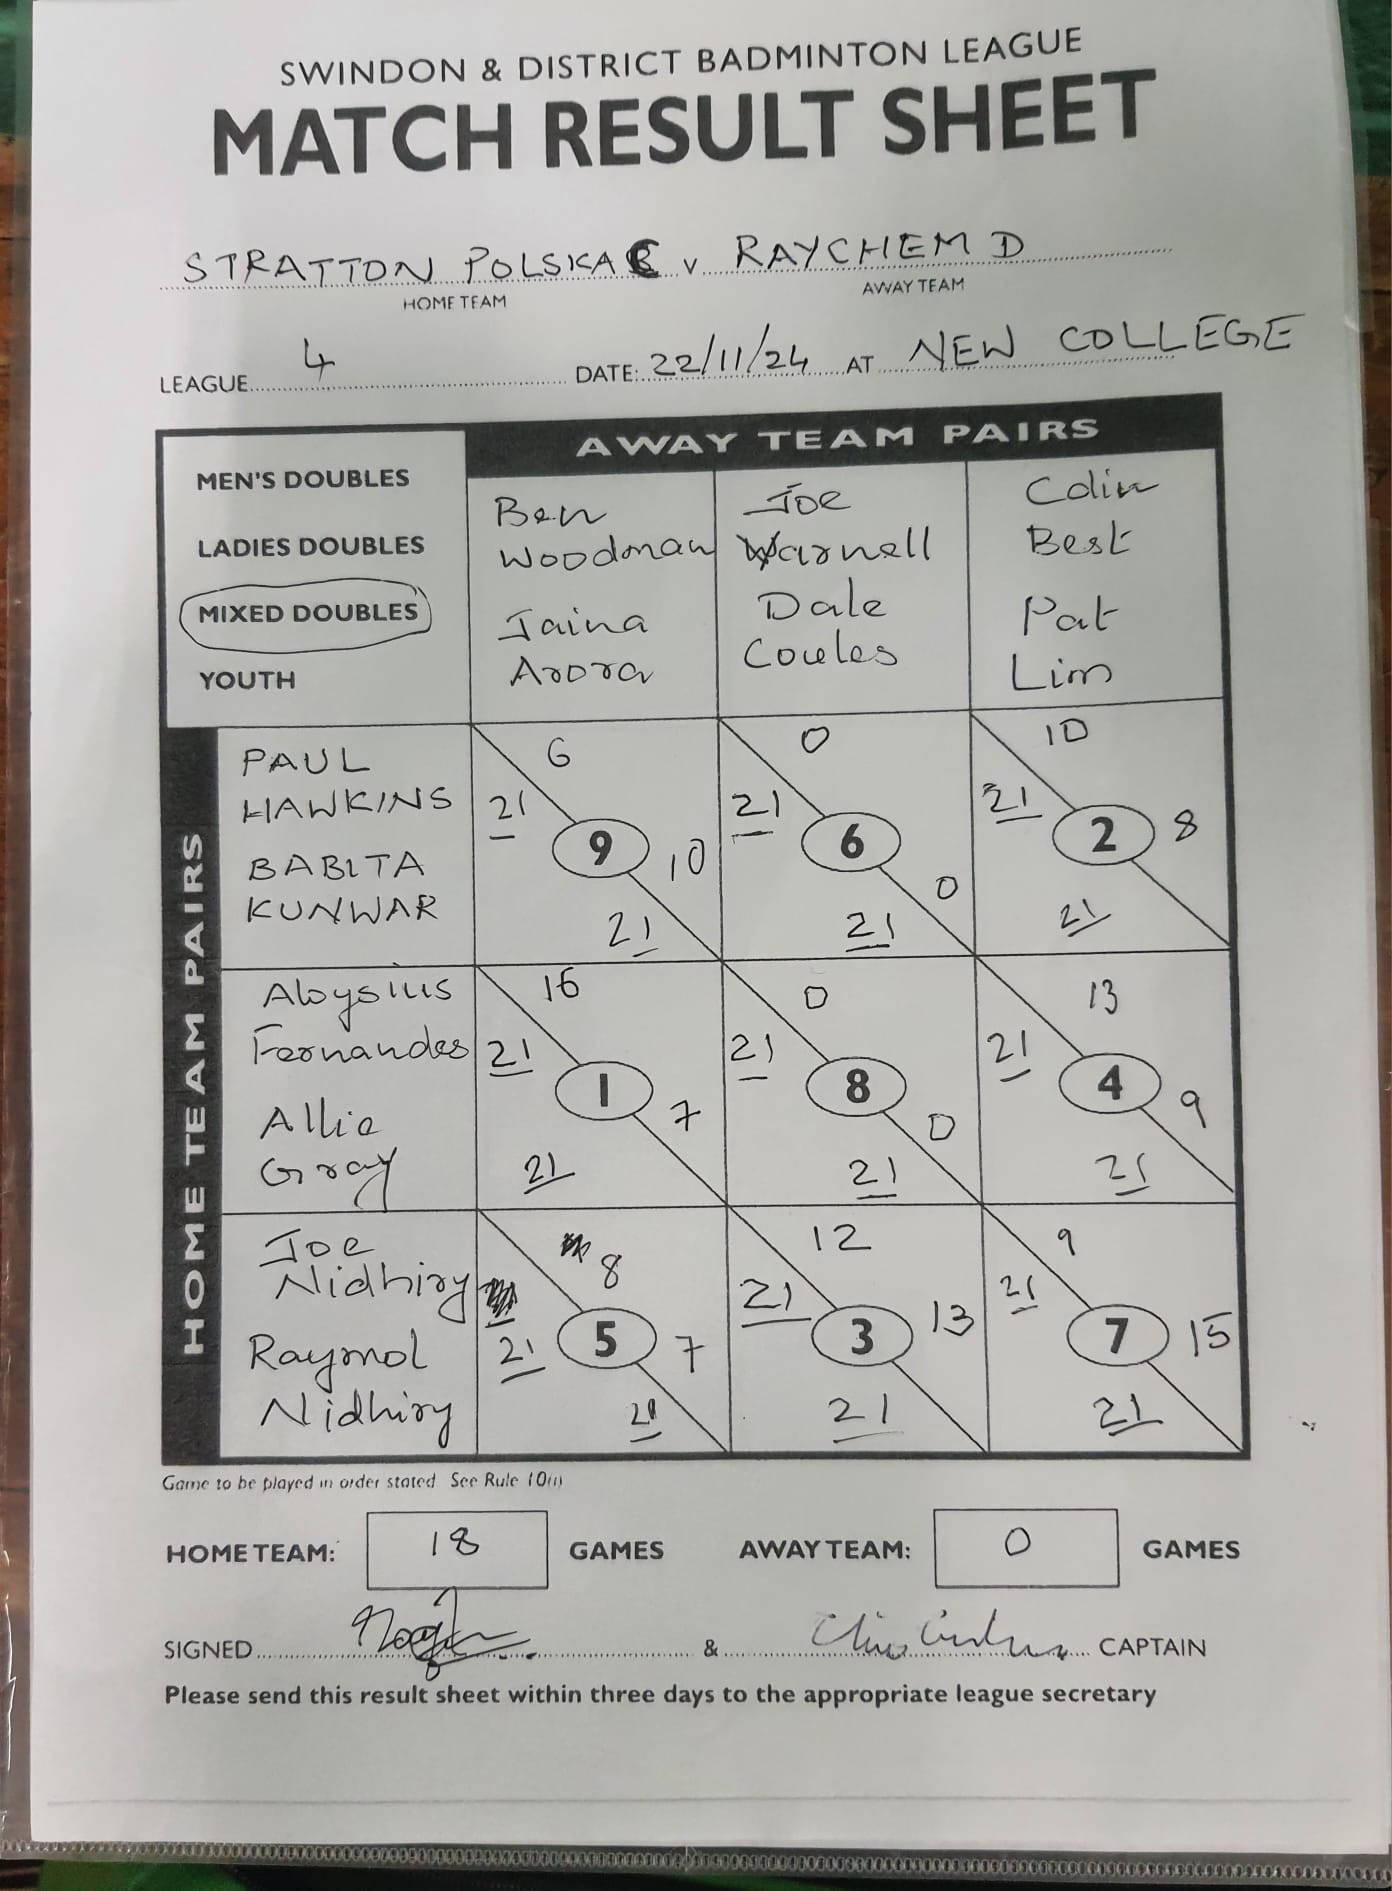 SWINDON & DISTRICT BADMINTON LEAGUE
MATCH RESULT SHEET
STRATTON POLSKA C v RAYCHEM D
HOME TEAM AWAY TEAM
LEAGUE 4 DATE: 22/11/24 AT NEW COLLEGE
AWAY TEAM PAIRS
MEN'S DOUBLES
LADIES DOUBLES
MIXED DOUBLES
YOUTH
Ben
Woodman
Jaina
Arora
Joe
Warnell
Dale
Coules
Colin
Best
Pat
Lim
HOME TEAM PAIRS
PAUL
HAWKINS
BABITA
KUNWAR
6
21
9
10
21
0
21
6
0
21
10
21
2
8
21
Aloysius
Fernandes
Allie
Gray
16
21
1
7
21
0
21
8
0
21
13
21
4
9
21
Joe
Nidhiry
Raymol
Nidhiry
8
21
5
7
21
12
21
3
13
21
9
21
7
15
21
Game to be played in order stated See Rule 10(i)
HOME TEAM: 18 GAMES AWAY TEAM: 0 GAMES
SIGNED & CAPTAIN
Please send this result sheet within three days to the appropriate league secretary